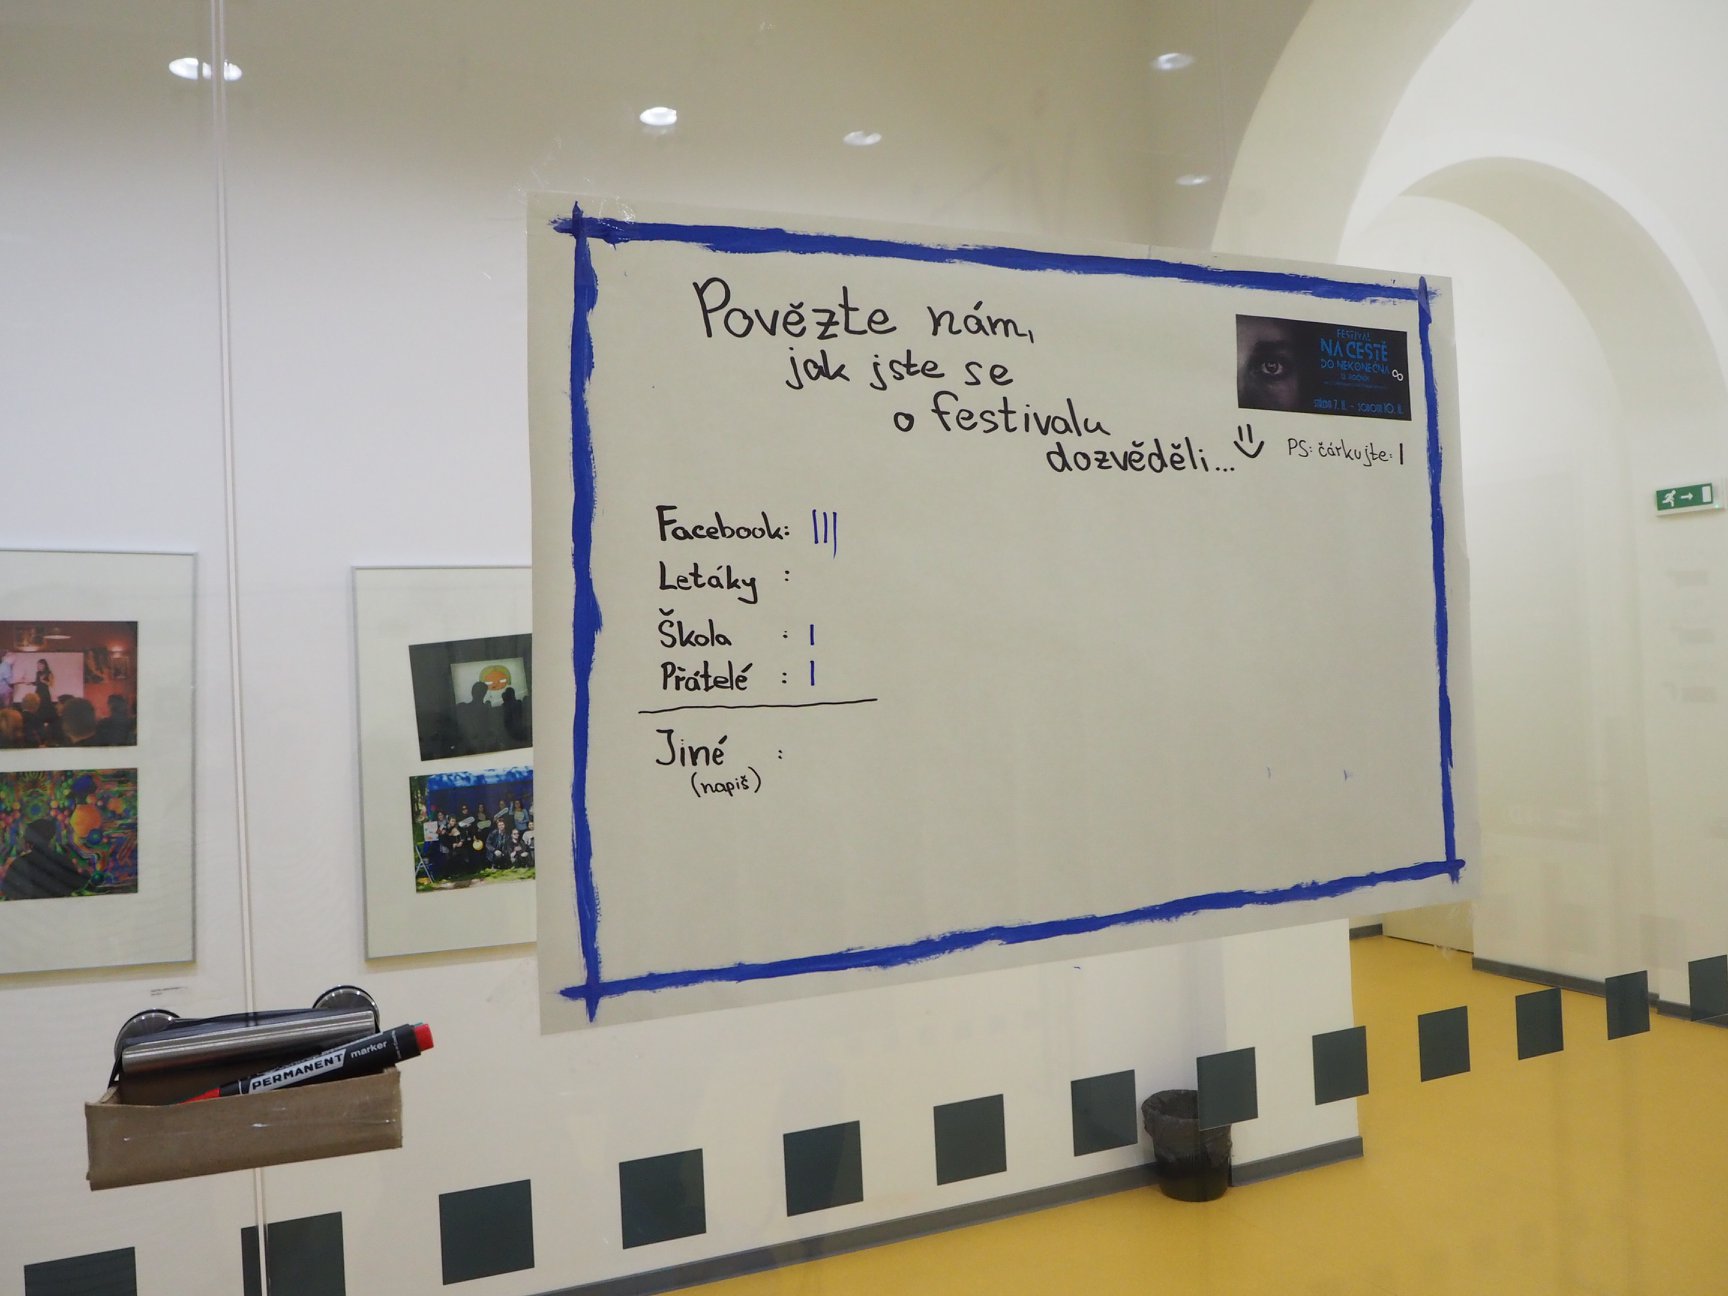 Povězte nám,
jak jste se
o festivalu
dozvěděli...
PS: čárkujte: I
FESTIVAL
NA CESTĚ
DO NEKONEČNA
STŘEDA 7. 11. - SOBOTA 10. 11.
Facebook: |||
Letáky :
Škola : |
Přátelé : |
Jiné :
(napiš)
PERMANENT marker